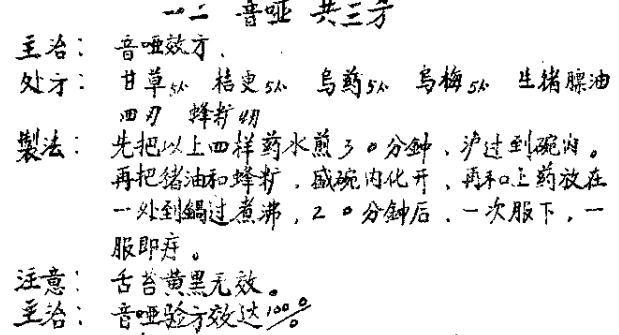 一二 音哑 共三方
主治: 音哑效方.
处方: 甘草5八 桔更5八 乌药5八 乌梅5八 生猪膘油
四刃 蜂籽4刃
製法: 先把以上四样药水煎30分鐘、沪过到碗内。
再把猪油和蜂籽、盛碗内化开、再和上药放在
一处到鍋过煮沸、20分鐘后、一次服下、一
服即疗。
注意: 舌苔黄黑无效。
主治: 音哑验方效达100%